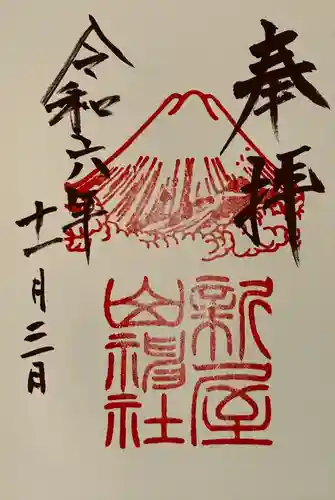 奉拝
令和六年
十一月三日
新屋
山神社